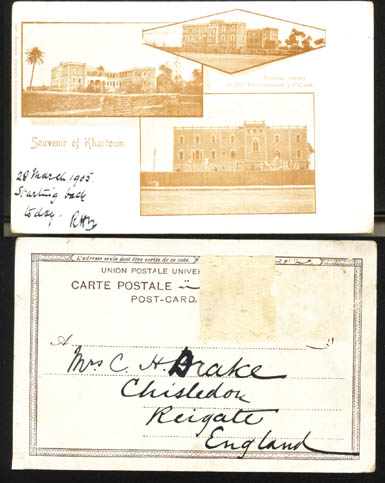 Various views
of the Government's Palace.
Souvenir of Khartoum.
28 March 1905.
Starting back
today.
L'adresse seule doit être écrite de ce côté.
UNION POSTALE UNIVER
CARTE POSTALE
POST-CARD.
A
Mrs C. H. Drake
Chisledon
Reigate
England